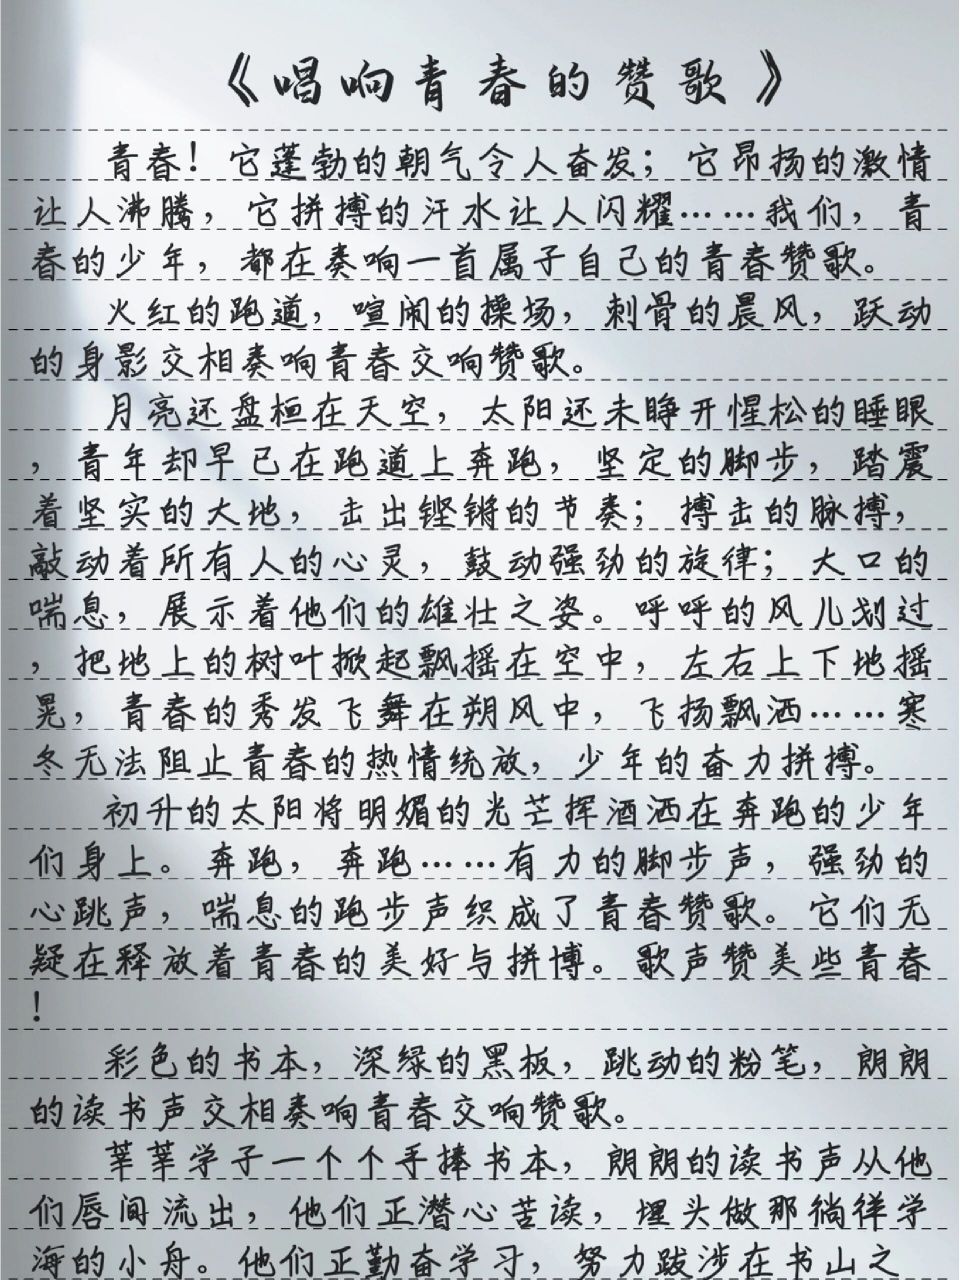 《唱响青春的赞歌》
青春！它蓬勃的朝气令人奋发；它昂扬的激情
让人沸腾，它拼搏的汗水让人闪耀……我们，青
春的少年，都在奏响一首属于自己的青春赞歌。
火红的跑道，喧闹的操场，刺骨的晨风，跃动
的身影交相奏响青春交响赞歌。
月亮还盘桓在天空，太阳还未睁开惺松的睡眼
，青年却早已在跑道上奔跑，坚定的脚步，踏震
着坚实的大地，击出铿锵的节奏；搏击的脉搏，
敲动着所有人的心灵，鼓动强劲的旋律；大口的
喘息，展示着他们的雄壮之姿。呼呼的风儿划过
，把地上的树叶掀起飘摇在空中，左右上下地摇
晃，青春的秀发飞舞在朔风中，飞扬飘洒……寒
冬无法阻止青春的热情统放，少年的奋力拼搏。
初升的太阳将明媚的光芒挥酒洒在奔跑的少年
们身上。奔跑，奔跑……有力的脚步声，强劲的
心跳声，喘息的跑步声织成了青春赞歌。它们无
疑在释放着青春的美好与拼博。歌声赞美些青春
！
彩色的书本，深绿的黑板，跳动的粉笔，朗朗
的读书声交相奏响青春交响赞歌。
莘莘学子一个个手捧书本，朗朗的读书声从他
们唇间流出，他们正潜心苦读，埋头做那徜徉学
海的小舟。他们正勤奋学习，努力跋涉在书山之